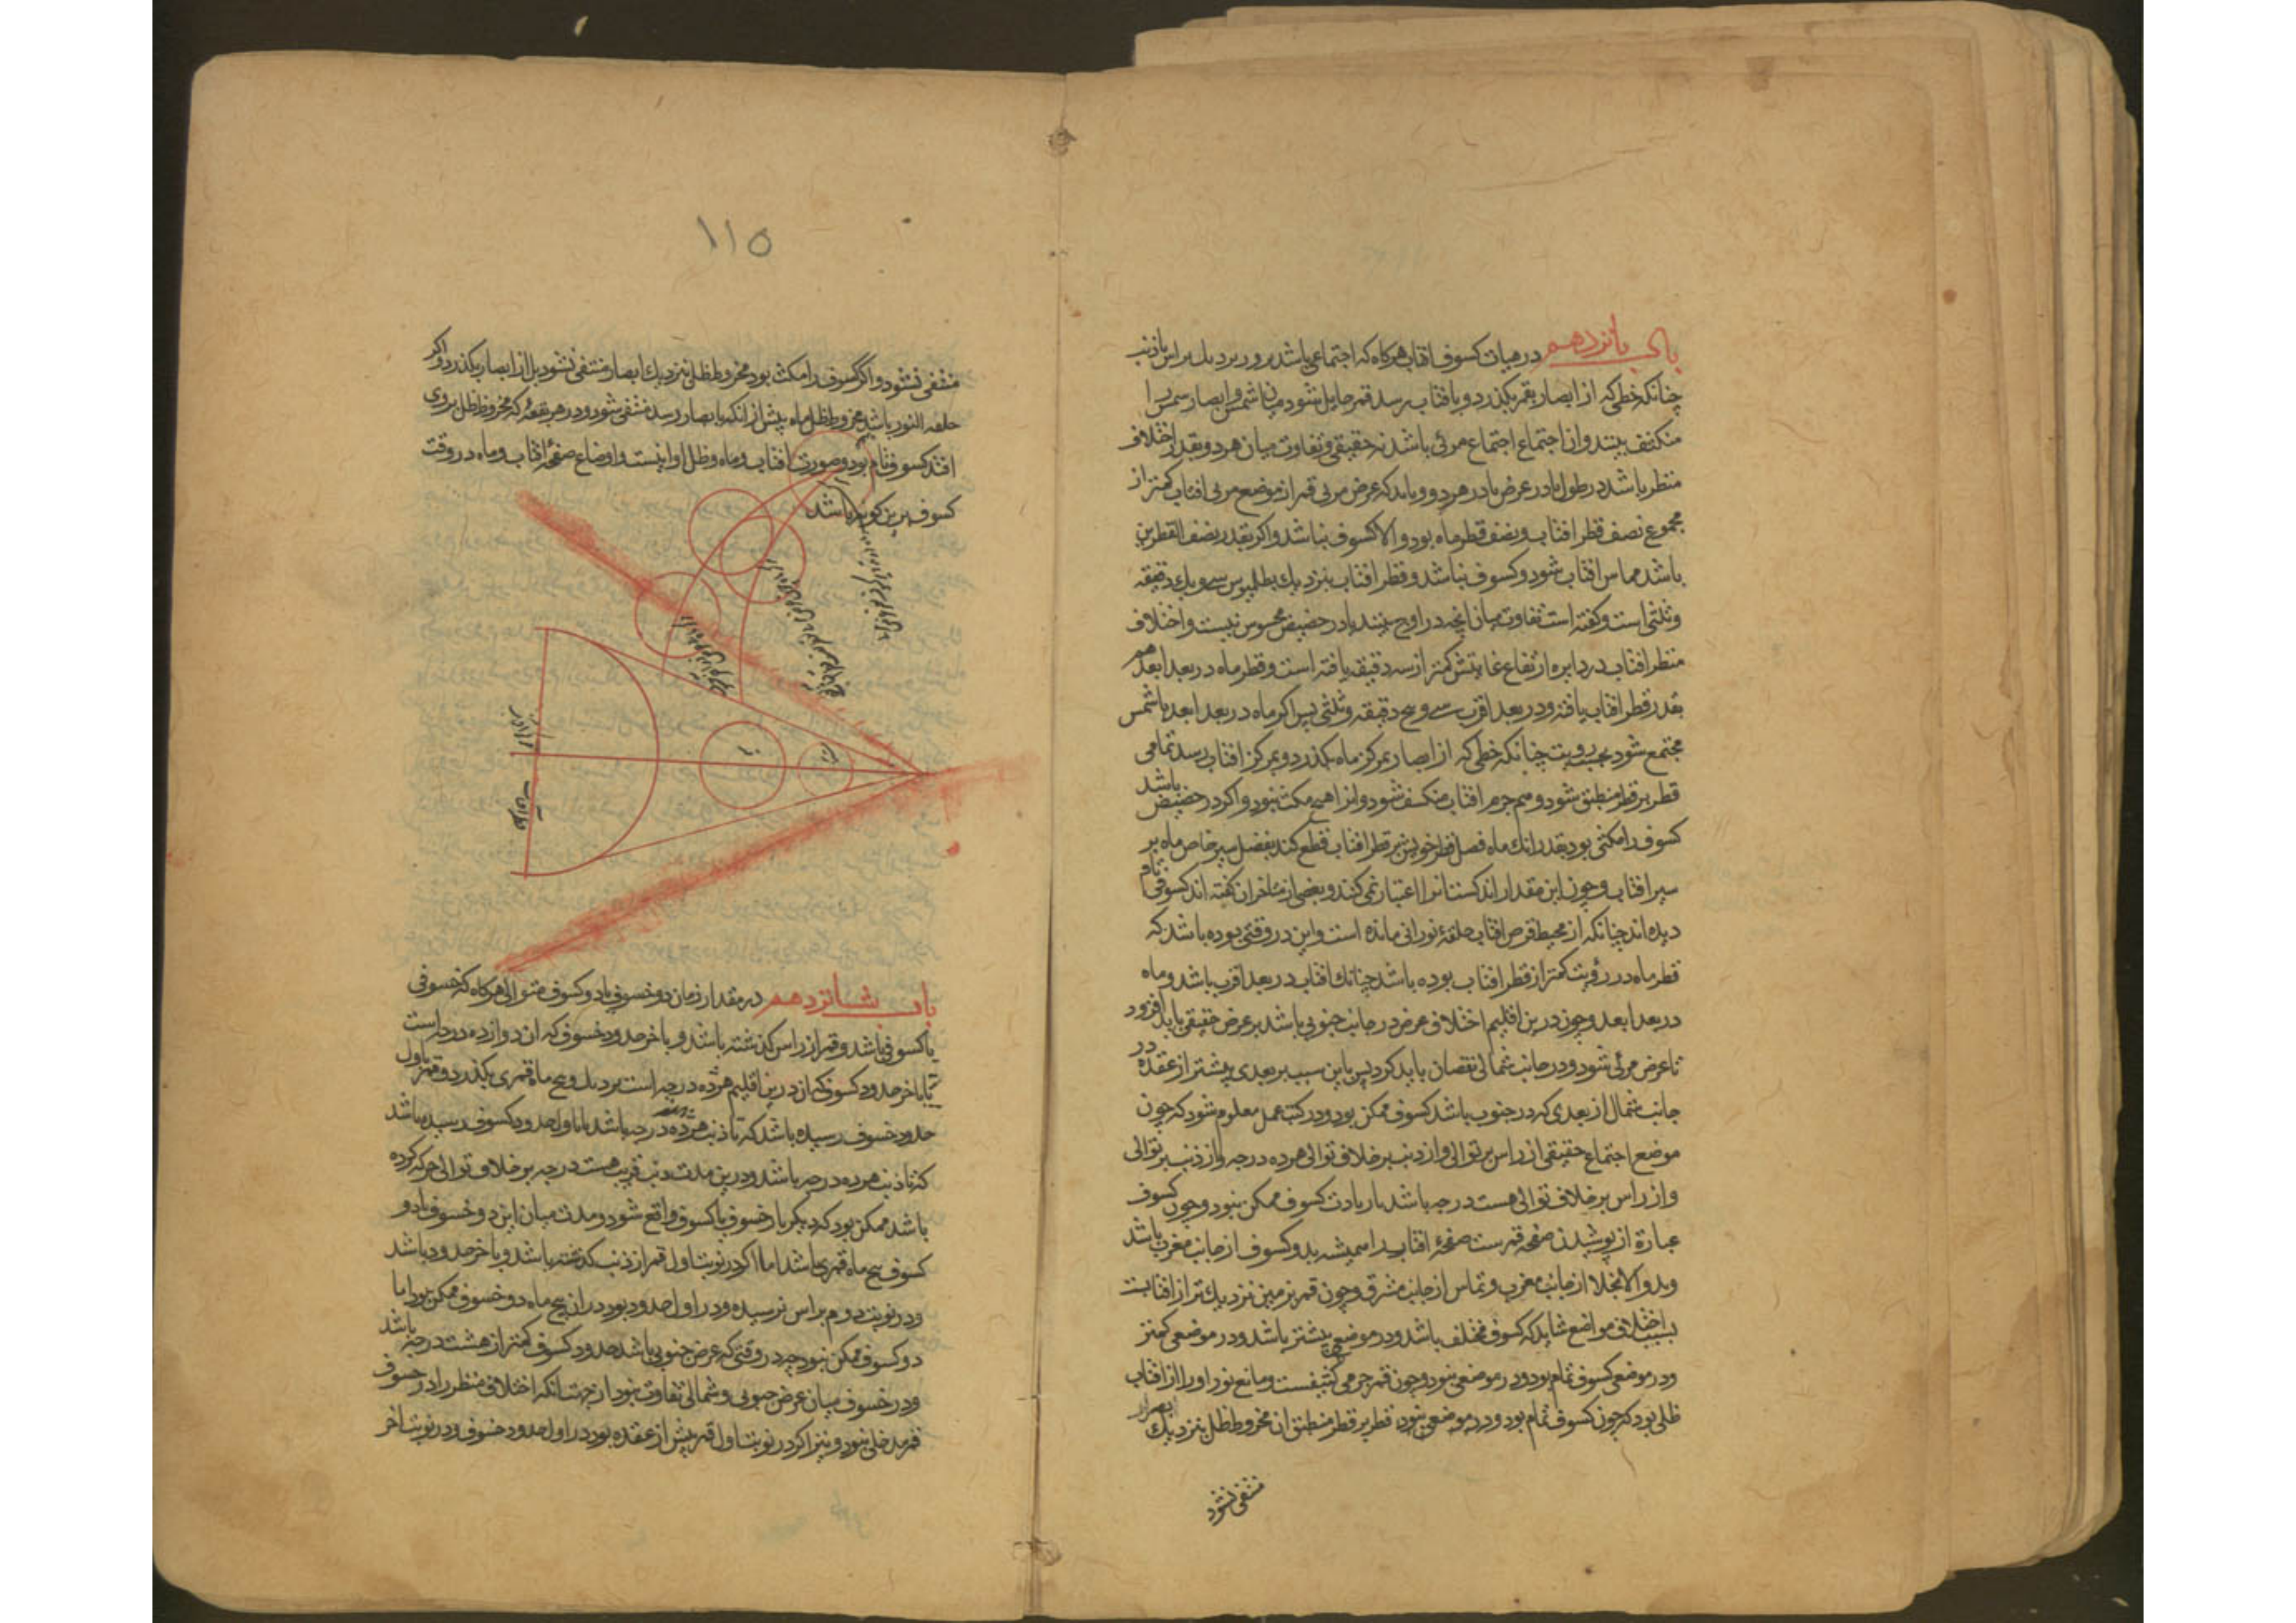 باب پانزدهم در بیان کسوف افتاب هرکاه که اجتماعی باشد بر ور نزدیك براس یا ذنب
چنانکه خطی که از ابصار بقمر بکذرد و بافتاب رسد قمر حایل شود میان شمس و ابصار شمس را
منکسف بینند و ان اجتماع اجتماع مرئی باشد نه حقیقی و تفاوت میان هردو بقدر اختلاف
منظر باشد در طول یا در عرض یا در هر دو و باید که عرض مرئی قمر از موضع مرئی افتاب کمتر از
مجموع نصف قطر افتاب و نصف قطر ماه بود و الا کسوف نباشد و اکر بقدر نصف القطرین
باشد مماس افتاب شود و کسوف نباشد و قطر افتاب بنزدیك بطلمیوس سی و یك دقیقه
و ثلثی است و کفته است تفاوت میان انچه در اوج بینند یا در حضیض محسوس نیست و اختلاف
منظر افتاب در دایره ارتفاع غایتش کمتر از سه دقیقه یافته است و قطر ماه در بعد ابعد هم
بقدر قطر افتاب یافته و در بعد اقرب سی و پنج دقیقه و ثلثی پس اکر ماه در بعد ابعد با شمس
مجتمع شود بحسب رویت چنانکه خطی که از ابصار بمرکز ماه بکذرد و بمرکز افتاب رسد تمامی
قطر بر قطر منطبق شود و همه جرم افتاب منکسف شود و انرا هیچ مکث نبود و اکر در حضیض باشد
کسوف را مکثی بود بقدر انك ماه فصل قطر خویش بر قطر افتاب قطع کند بفضل سیر خاص ماه بر
سیر افتاب و چون این مقدار اندکست انرا اعتبار نمی کنند و بعضی از متاخران کفته اند کسوفی تام
دیده اند چنانکه از محیط قرص افتاب حلقهٔ نورانی مانده است و این در وقتی بوده باشد که
قطر ماه در رؤیت کمتر از قطر افتاب بوده باشد چنانك افتاب در بعد اقرب باشد و ماه
در بعد ابعد و چون درین اقلیم اختلاف عرض در جانب جنوبی باشد بر عرض حقیقی باید افزود
تا عرض مرئی شود و در جانب شمالی نقصان باید کرد پس باین سبب بر بعدی بیشتر از عقده در
جانب شمال از بعدی که در جنوب باشد کسوف ممکن بود و در کتب عمل معلوم شود که چون
موضع اجتماع حقیقی از راس بر توالی و از ذنب بر خلاف توالی هژده درجه و از ذنب بر توالی
و از راس بر خلاف توالی هست درجه باشد یا زیادت کسوف ممکن نبود و چون کسوف
عبارة از پوشیدن صفحه قمرست صفحهٔ افتاب را همیشه بدو کسوف از جانب مغرب باشد
و بدو الانجلا از جانب مغرب و تماس از جانب مشرق و چون قمر بزمین نزدیك تر از افتابست
بسبب اختلاف مواضع شاید که کسوف مختلف باشد و در موضعی بیشتر باشد و در موضعی کمتر
و در موضعی کسوف تمام بود و در موضعی نبود و چون قمر جرمی کثیفست و مانع نور او را از افتاب
ظلی بود که چون کسوف تمام بود و در موضعی نبود قطر بر قطر منطبق ان مخروط ظل بنزدیك ابصار
منتفی نشود
۱۱۵
منتفی نشود و اکر کسوف را مکث بود مخروط ظل بنزدیك ابصار منتفی نشود بل از ابصار بکذرد و اکر
حلقه النور باشد مخروط ظل ماه پیش از انکه بابصار رسد منتفی شود و در هر بقعهٔ که مخروط ظل بروی
افتد کسوف تام بود و صورت افتاب و ماه و ظل او اینست و اوضاع صفحهٔ افتاب و ماه در وقت
کسوف برین کونه باشد
قطر افتاب
باب شانزدهم در مقدار زمان دو خسوف یا دو کسوف متوالی هرکاه که خسوفی
یا کسوفی باشد و قمر از راس کذشته باشد و باخر حدود خسوف که ان دوازده درجه است
یا باخر حدود کسوف که ان درین اقلیم هژده درجه است نزدیك و پنج ماه قمری بکذرد و قمر باول
حدود خسوف رسیده باشد که تا ذنب دوازده درجه باشد یا باول حدود کسوف رسیده باشد
که تا ذنب هژده درجه باشد و درین مدت ذنب قریب هست درجه بر خلاف توالی حرکت کرده
باشد ممکن بود که دیکر بار خسوف یا کسوف واقع شود و مدت میان این دو خسوف یا دو
کسوف پنج ماه قمری باشد اما اکر در نوبت اول قمر از ذنب کذشته باشد و باخر حدود باشد
و در نوبت دوم براس نرسیده و در اول حدود بود در ان پنج ماه دو خسوف ممکن بود اما
دو کسوف ممکن نبود چه در وقتی که عرض جنوبی باشد حدود کسوف کمتر از هشت درجه باشد
و در خسوف میان عرض جنوبی و شمالی تفاوت نبود از جهت انکه اختلاف منظر را در خسوف
قمر مدخلی نبود و نیز اکر در نوبت اول قمر پیش از عقده بود در اول حدود خسوف و در نوبت اخر